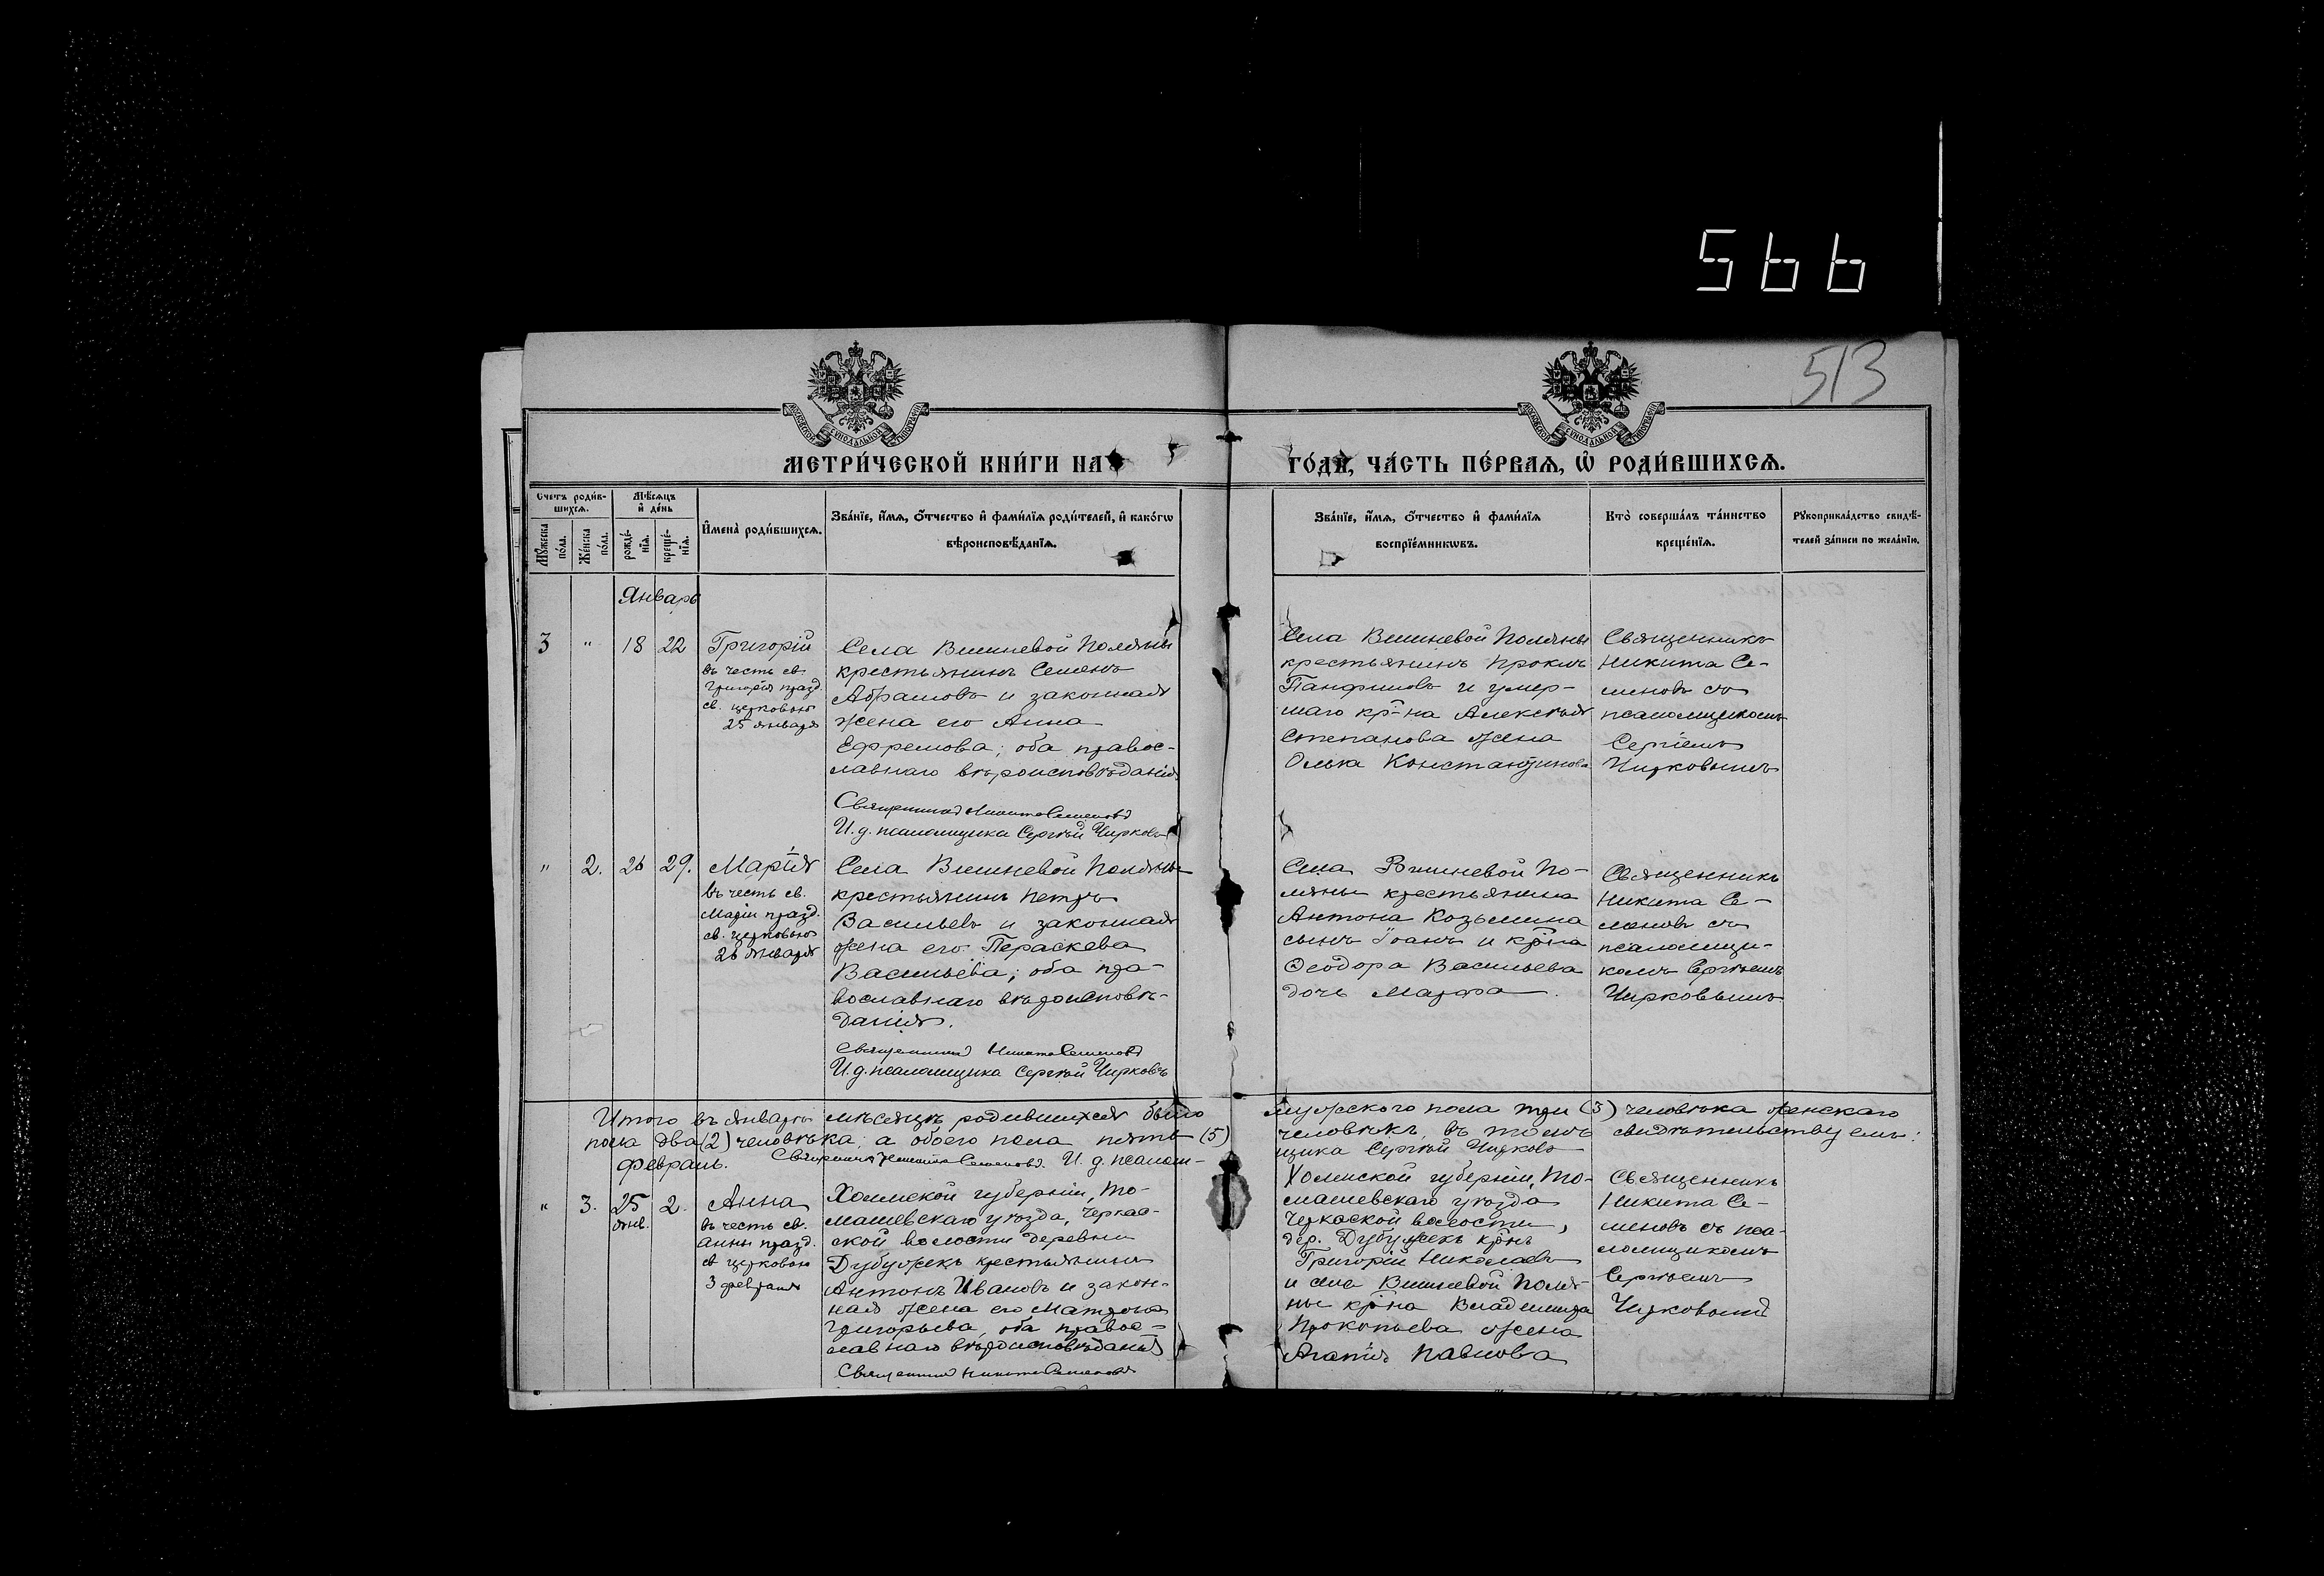 566
513
МОСКОВСКОЙ СѴНОДАЛЬНОЙ ТИПОГРАФІИ
МОСКОВСКОЙ СѴНОДАЛЬНОЙ ТИПОГРАФІИ
МЕТРИ́ЧЕСКОЙ КНИ́ГИ НА
ГО́ДЪ, ЧА́СТЬ ПЕ́РВАѦ, Ѡ҆ РОДИ́ВШИХСѦ.
Счетъ роди́в-
шихсѧ.
Мѣ́сѧцъ
и҆ де́нь
Мꙋ́жеска
по́ла.
Же́нска
по́ла.
рожде́-
нїѧ.
креще́-
нїѧ.
И҆мена̀ роди́вшихсѧ.
Зва́нїе, и҆́мѧ, ѻ҆́тчество и҆ фами́лїѧ роди́телей, и҆ како́гѡ
вѣроисповѣ́данїѧ.
Зва́нїе, и҆́мѧ, ѻ҆́тчество и҆ фами́лїѧ
воспрїе́мникѡвъ.
Кто̀ соверша́лъ та́инство
креще́нїѧ.
Рꙋкоприкла́дство свидѣ́-
телей за́писи по жела́нїю.
Январь
3 " 18 22 Григорій
въ честь св.
Григорія празд.
св. церковью
25 января
Села Вишневой Поляны
крестьянинъ Семенъ
Абрамовъ и законная
жена его Анна
Ефремова; оба правос-
лавнаго вѣроисповѣданія
Священникъ Никита Семеновъ
И.д. псаломщика Сергѣй Чирковъ
Села Вишневой Поляны
крестьянинъ Прокопъ
Панфиловъ и умер-
шаго кр-на Алексѣя
Степанова жена
Ольга Константинова
Священникъ
Никита Се-
меновъ съ
псаломщикомъ
Сергіемъ
Чирковымъ
" 2. 26 29. Марія
въ честь св.
Маріи празд.
св. церковью
26 января
Села Вишневой Поляны
крестьянинъ Петръ
Васильевъ и законная
жена его Пераскева
Васильева; оба пра-
вославнаго вѣроисповѣ-
данія.
Священникъ Никита Семеновъ
И.д. псаломщика Сергѣй Чирковъ
Села Вишневой По-
ляны крестьянина
Антона Козьмина
сынъ Іоанъ и кр-на
Ѳеодора Васильева
дочь Марфа.
Священникъ
Никита Се-
меновъ съ
псаломщи-
комъ Сергѣемъ
Чирковымъ
Итого въ январѣ мѣсяцѣ родившихся было мужского пола три (3) человѣка женскаго
пола два (2) человѣка, а обоего пола пять (5) человѣкъ, въ томъ свидѣтельствуемъ:
Священникъ Никита Семеновъ. И. д. псалом-
щика Сергѣй Чирковъ
Февраль.
" 3. 25 2. Анна
янв.
въ честь св.
Анны празд.
св церковью
3 февраля
Холмской губерніи, То-
машевскаго уѣзда, Черкас-
ской волости деревни
Дубужекъ крестьянинъ
Антонъ Ивановъ и закон-
ная жена его Матрона
Григорьева, оба правос-
лавнаго вѣроисповѣданія
Священникъ Никита Семеновъ
Холмской губерніи, То-
машевскаго уѣзда
Черкаской волости,
дер. Дубужекъ кр-нъ
Григорій Николаевъ
и села Вишневой Поля-
ны кр-на Владимира
Прокопьева жена
Агапія Павлова
Священникъ
Никита Се-
меновъ съ пса-
ломщикомъ
Сергѣемъ
Чирковымъ